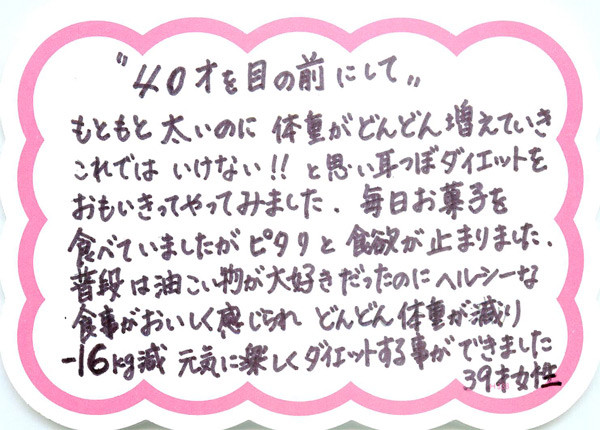 "40才を目の前にして"
もともと太いのに 体重がどんどん増えていき
これでは いけない!! と思い耳つぼダイエットを
おもいきってやってみました. 毎日お菓子を
食べていましたがピタリと 食欲が止まりました.
普段は油こい物が大好きだったのにヘルシーな
食事がおいしく感じられ どんどん体重が減り
-16kg減 元気に楽しくダイエットする事ができました
39才女性